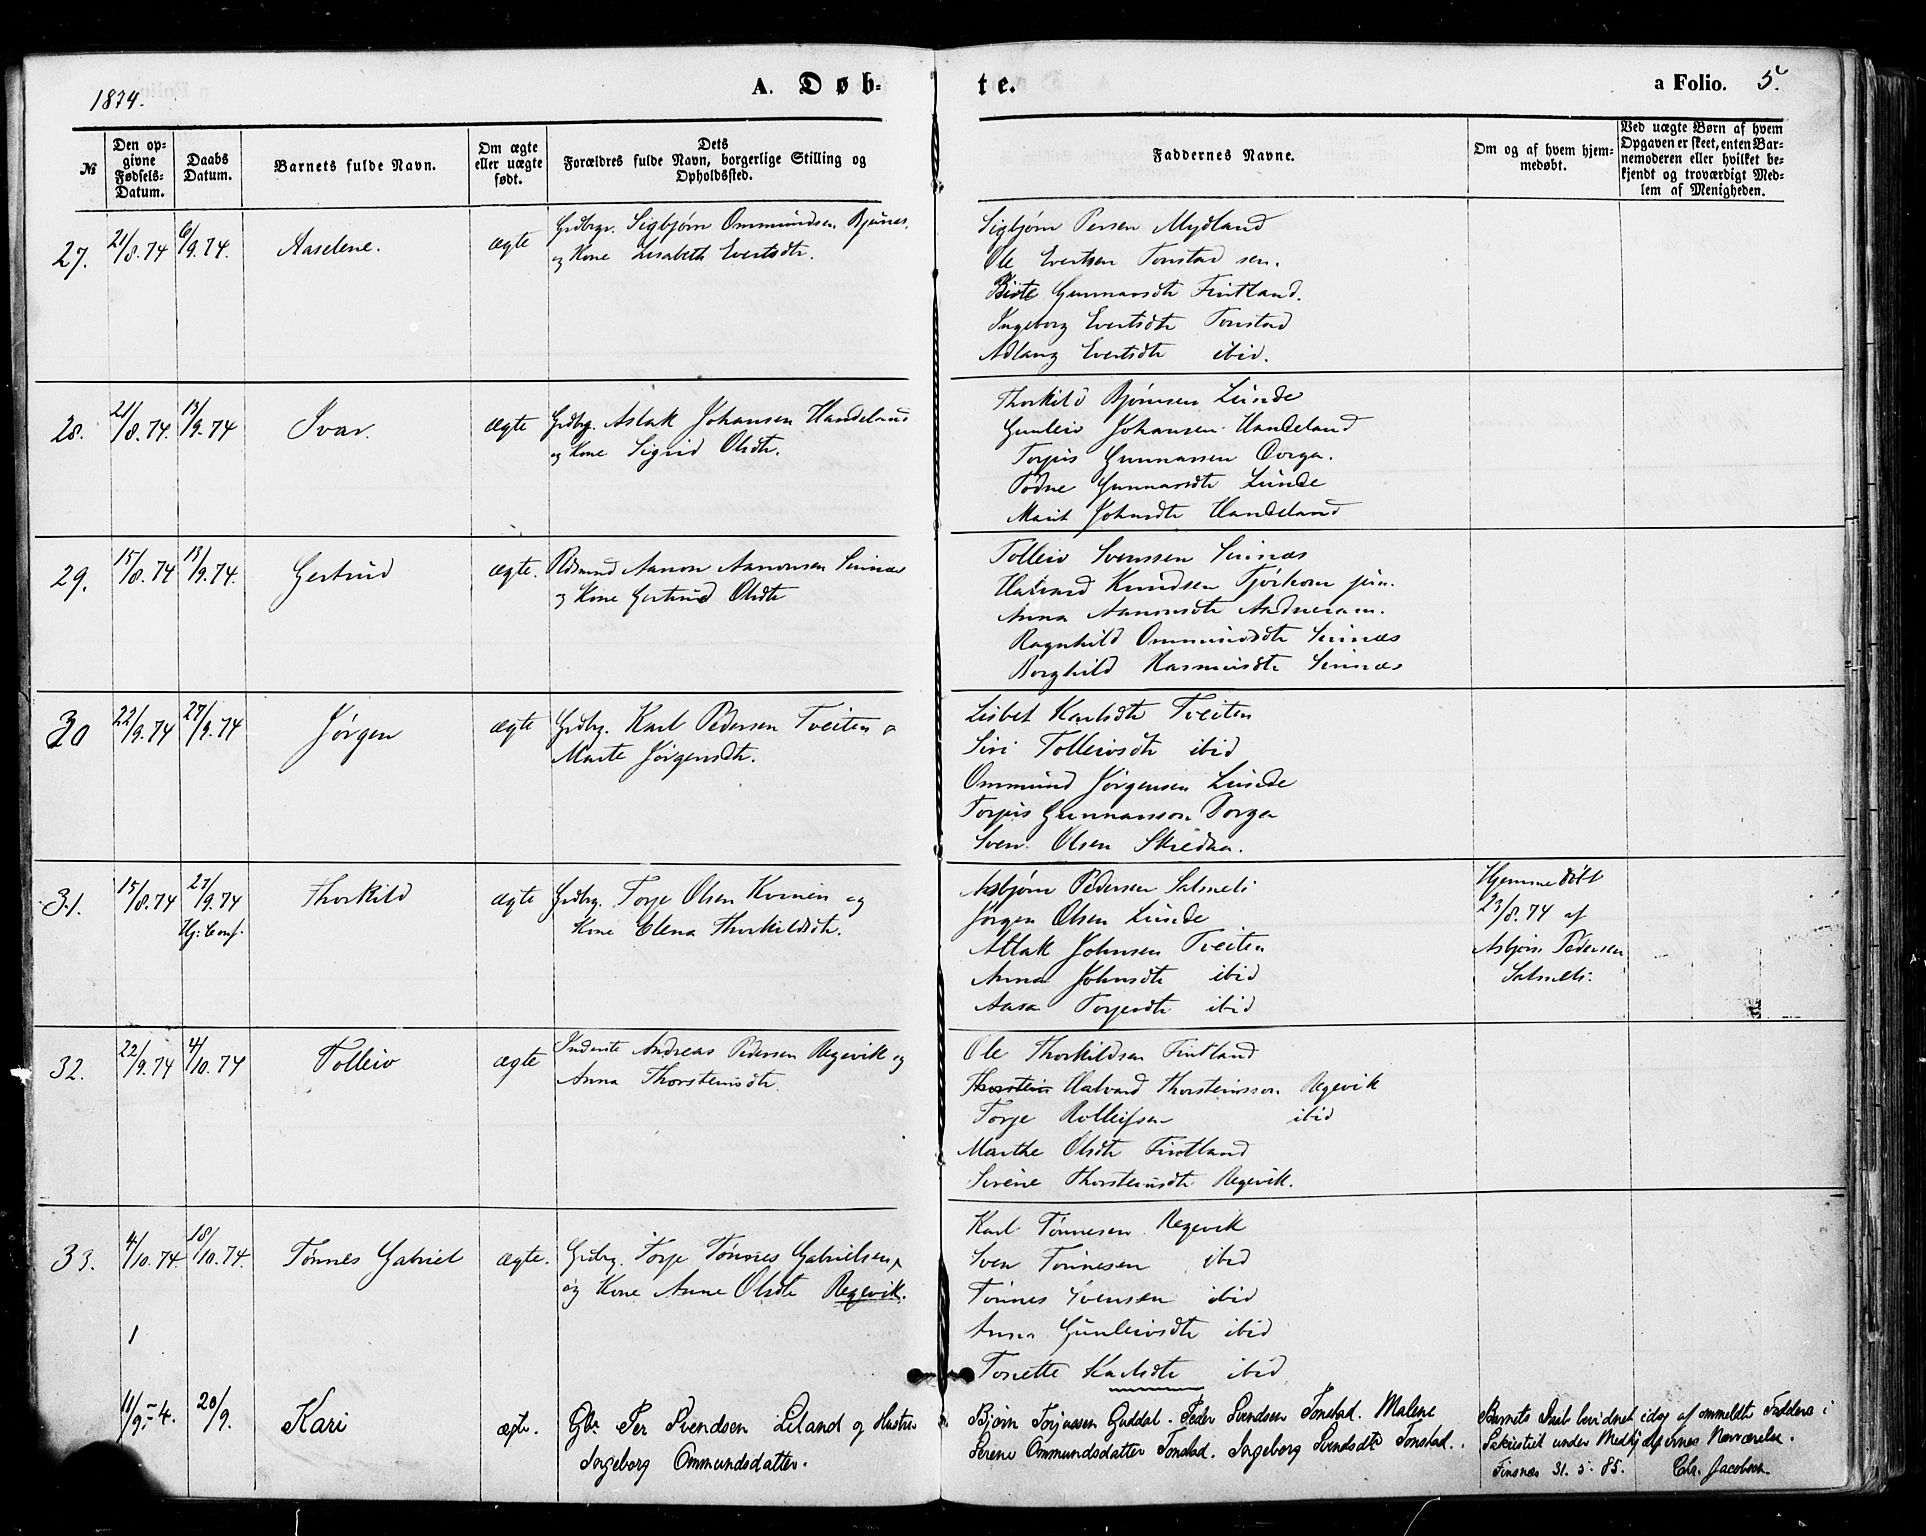 1874.
A. Døb-
te.
a Folio. 5.
№
Den op-
givne
Fødsels-
Datum.
Daabs
Datum.
Barnets fulde Navn.
Om ægte
eller uægte
født.
Dets
Forældres fulde Navn, borgerlige Stilling og
Opholdssted.
Faddernes Navne.
Om og af hvem hjem-
medøbt.
Ved uægte Børn af hvem
Opgaven er skeet, enten Bar-
nemoderen eller hvilket be-
kjendt og troværdigt Med-
lem af Menigheden.
27.
21/8. 74
6/9. 74.
Aaselene.
ægte
Grdbgr. Sigbjørn Ommundsen
og Kone Lisabeth Evertsdtr.
Sigbjørn Persen Mydland
Ole Evertsen Tonstad sen.
Birte Gunnarsdtr Fintland.
Ingeborg Evertsdtr Tonstad
Adlaug Evertsdtr ibid.
28.
21/8. 74.
13/9. 74
Ivar.
ægte
Grdbrg. Aslak Johansen Handeland
og Kone Sigrid Olsdtr.
Thorkild Bjørnsen Lunde
Gunleiv Johansen Handeland
Torjus Gunnarsen Dorga.
Tødne Gunnarsdtr Lunde
Marit Johnsdtr Handeland
29.
15/8. 74
13/9. 74.
Gertrud
ægte.
Aanon Aanonsen Sinnæs
og Kone Gertrud Olsdtr
Tolleiv Svenssen Sinnæs
Halvard Knudsen Tjørhom jun.
Anna Aanonsdtr Aadneram.
Ragnhild Ommundsdtr Sinnæs
Borghild Rasmusdtr Sinnæs
30
22/9. 74
27/9. 74
Jørgen
ægte
Grdbrg. Karl Pedersen Tveiten o
Marte Jørgensdtr.
Lisbet Karlsdtr Tveiten
Siri Tolleivsdtr ibid
Ommund Jørgensen Lunde
Torjus Gunnarsson Dorga
Sven Olsen Skredaa.
31.
15/8. 74
27/9. 74
Hj. Conf.
Thorkild
ægte
Grdbrg. Torje Olsen Kvinen og
Kone Elena Thorkildsdtr.
Asbjørn Pedersen Salmeli
Jørgen Olsen Lunde
Atlak Johnsen Tveiten
Anna Johnsdtr ibid
Aasa Torjesdtr ibid
Hjemmedøbt
23/8. 74 af
Asbjørn Pedersen
Salmeli.
32.
22/9. 74
4/10. 74
Tolleiv
ægte
Inderste Andreas Pedersen Regevik og
Anna Thorsteinsdtr.
Ole Thorkildsen Fintland
Thorstein Halvard Thorsteinsson Regevik
Torje Rolleifsen ibid
Marthe Olsdtr Fintland
Sirene Thorsteinsdtr Regevik.
33.
4/10. 74.
18/10. 74.
Tønnes Gabriel
ægte.
Grdbrg. Torje Tønnes Gabrielsen
og Kone Anne Olsdtr Regevik.
Karl Tønnesen Regevik
Sven Tønnesen ibid
Tønnes Svensen ibid
Anna Gunleivsdtr ibid
Tonette Karlsdtr ibid
1
11/9. -4.
20/9.
Kari
ægte.
Gbr. Per Svendsen Liland og Hustru
Ingeborg Ommundsdatter.
Bjørn Torjussen Guddal. Peder Svendsen Tonstad. Malene
Serene Ommundsdatter Tonstad. Ingeborg Svendsdtr Tonstad.
Barnets Daab bevidnet idag af ommeldte Faddere i
Sakristiet under Medhjælpernes Nærværelse.
Finsnæs 31. 5. 85. Chr. Jacobsen